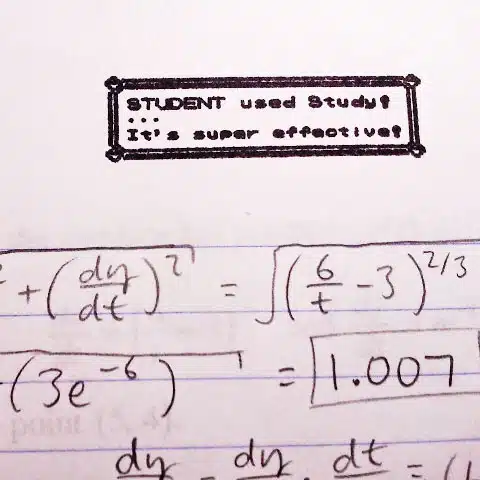 STUDENT used Study!
...
It's super effective!
² + (dy/dt)² = √(6/t - 3)^2/3
(3e^-6) = 1.007
dy/ = dy/ · dt/ = (1